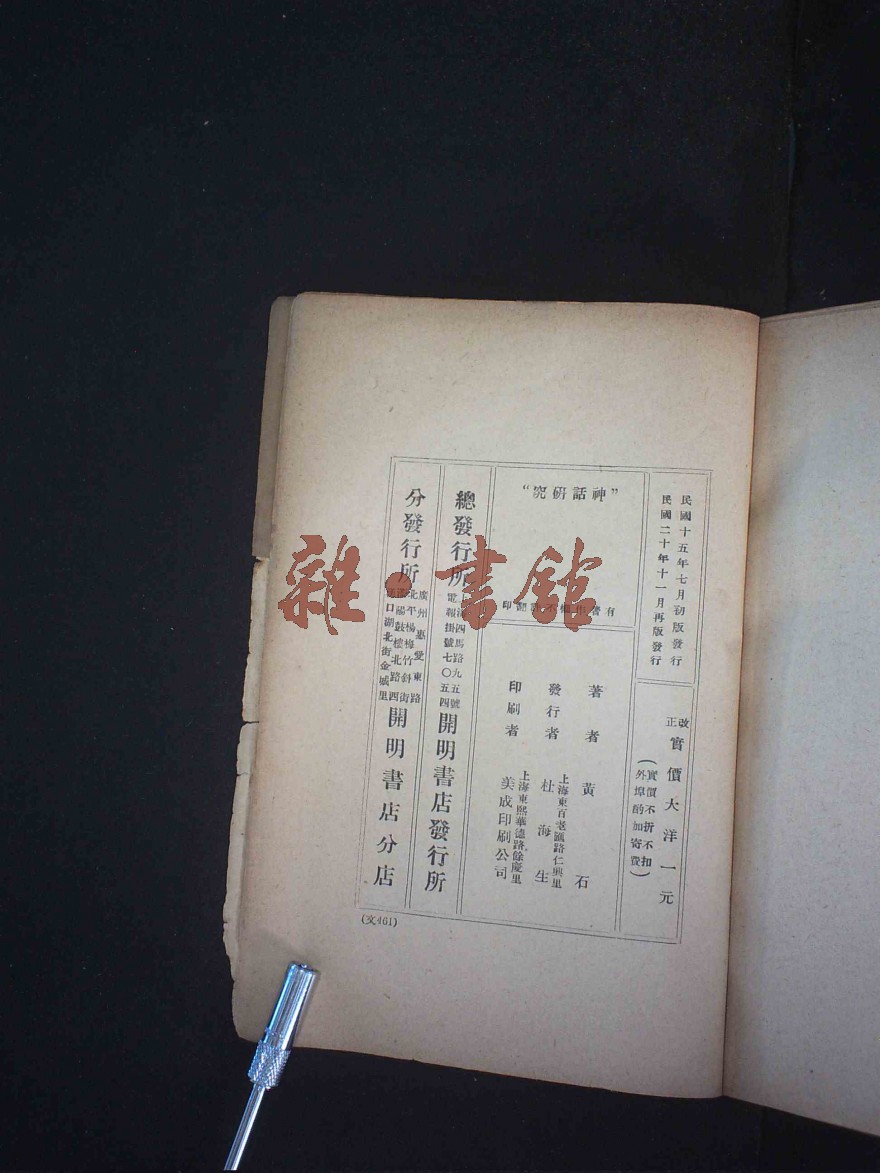 民國十五年七月初版發行
民國二十年十一月再版發行
改正
實價大洋一元
(實價不折不扣
外埠酌加寄費)
“神話硏究”
有著作權不許翻印
著者 黃石
發行者 上海東百老匯路仁興里
杜海生
印刷者 上海東熙華德路餘慶里
美成印刷公司
總發行所 海四馬路九五號
電報掛號七〇五四
開明書店發行所
分發行所 廣州惠愛東路
北平楊梅竹斜街
陽鼓樓北路西
口湖北街金城里
開明書店分店
(文461)
雜·書館